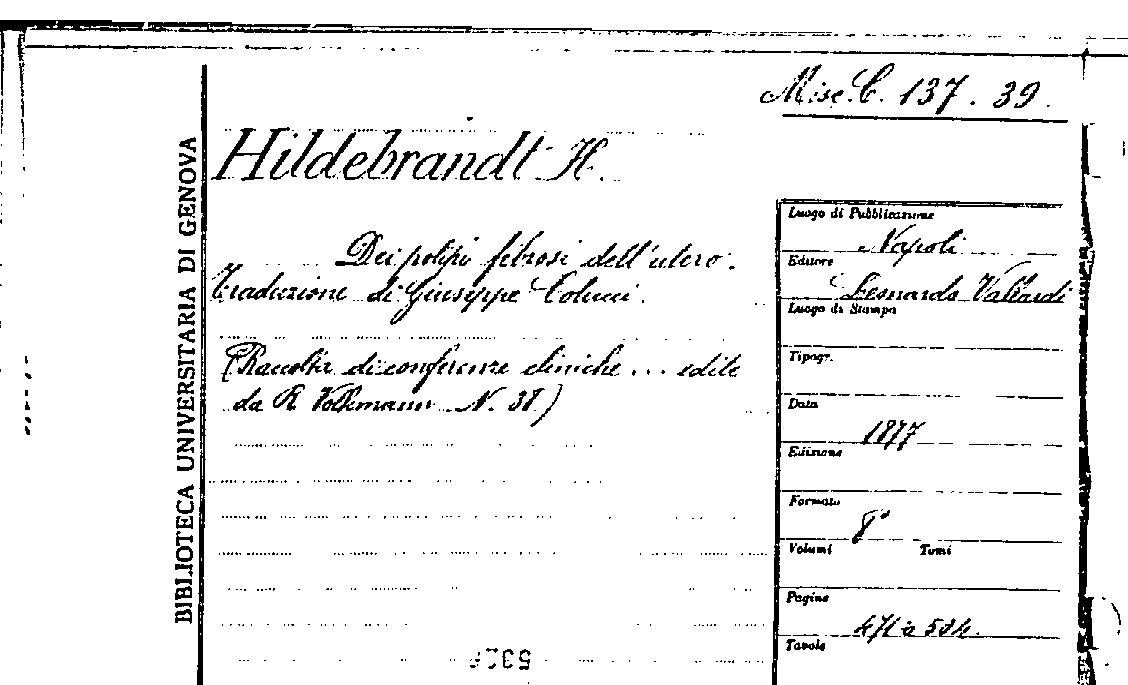 Misc. C. 137. 39.
BIBLIOTECA UNIVERSITARIA DI GENOVA
Hildebrandt H.
Dei polipi fibrosi dell'utero.
Traduzione di Giuseppe Colucci.
(Raccolta di conferenze cliniche ... edite
da R. Volkmann N. 38.)
Luogo di Pubblicazione
Napoli
Editore
Leonardo Vallardi
Luogo di Stampa
Tipogr.
Data
1877
Edizione
Formato
8°
Volumi Tomi
Pagine
Tavole